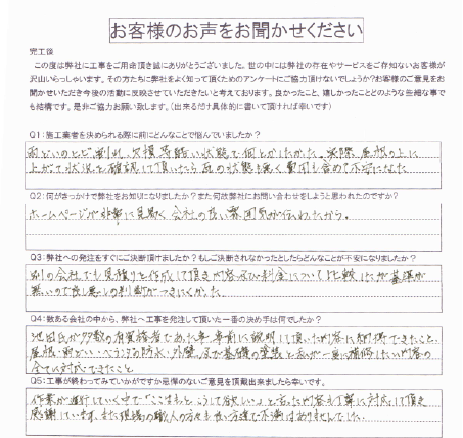 お客様のお声をお聞かせください
完工後
この度は弊社に工事をご用命頂き誠にありがとうございました。世の中には弊社の存在やサービスをご存知ないお客様が
沢山いらっしゃいます。その方たちに弊社をよく知って頂くためのアンケートにご協力頂けないでしょうか?お客様のご意見をお
聞かせいただき今後の活動に反映させていただきたいと考えております。良かったこと、嬉しかったことどのような些細な事で
も結構です。是非ご協力お願い致します。(出来るだけ具体的に書いて頂ければ幸いです)
Q1:施工業者を決められる際に前にどんなことで悩んでいましたか?
雨どいのとど割れ、欠損等酷い状態で何とかしたかった。実際、屋根の上に
上がって状況を確認して頂いたら瓦の状態も悪く費用も含めて不安になった
Q2:何がきっかけで弊社をお知りになりましたか?また何故弊社にお問い合わせをしようと思われたのですか?
ホームページが非常に見易く会社の良い雰囲気が伝わったから。
Q3:弊社への発注をすぐにご決断頂けましたか?もしご決断されなかったとしたらどんなことが不安になりましたか?
別の会社でも見積りを作成して頂き内容及び料金について比較したが基準が
無いので良し悪しの判断がつきにくかった。
Q4:数ある会社の中から、弊社へ工事を発注して頂いた一番の決め手は何でしたか?
池田氏が多数の有資格者であった事、事前に説明して頂いた内容に納得できたこと、
屋根・雨どい・ベランダの防水・外壁、及び基礎の塗装と私が一番に補修したい内容の
全てに対応できたこと
Q5:工事が終わってみていかがですか忌憚のないご意見を頂戴出来ましたら幸いです。
作業が進行していく中で「ここはもっとこうして欲しい」と言った内容も丁寧に対応して頂き
感謝しています。また現場の職人の方々も良い方達で不満はありませんでした。